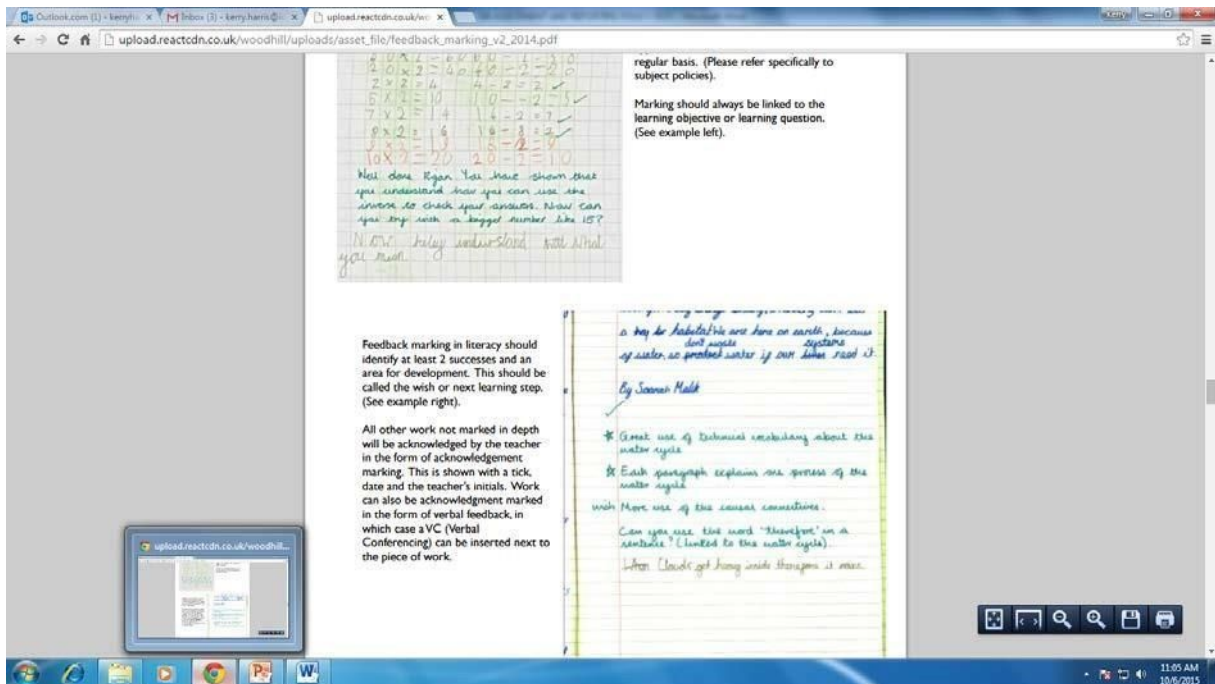 Outlook.com (1) - kerryha
Inbox (3) - kerry.harris@
upload.reactcdn.co.uk/wo
Kerry
upload.reactcdn.co.uk/woodhill/uploads/asset_file/feedback_marking_v2_2014.pdf
2 x 2 = 4 4 - 2 = 2
5 x 2 = 10
7 x 2 = 14
10 x 2 = 20 20 - 2 = 10
Well done Ryan You have shown that
you understand how you can use the
inverse to check your answers. Now can
you try with a bigger number like 15?
Now understand what
you
regular basis. (Please refer specifically to
subject policies).
Marking should always be linked to the
learning objective or learning question.
(See example left).
Feedback marking in literacy should
identify at least 2 successes and an
area for development. This should be
called the wish or next learning step.
(See example right).
All other work not marked in depth
will be acknowledged by the teacher
in the form of acknowledgement
marking. This is shown with a tick,
date and the teacher's initials. Work
can also be acknowledgment marked
in the form of verbal feedback, in
which case a VC (Verbal
Conferencing) can be inserted next to
the piece of work.
habitat We are here on earth, because
don't waste systems
of water, so product water if our need it
By Malik
Great use of technical vocabulary about the
water cycle
Each paragraph explains one process of the
water cycle
wish More use of the causal connectives.
Can you use the word "therefore" in a
sentence? (linked to the water cycle)
Clouds get heavy inside therefore it
upload.reactcdn.co.uk/woodhill...
11:05 AM
10/6/2015